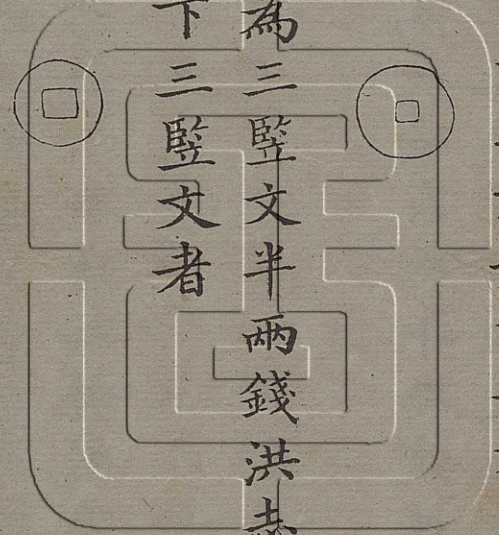 為三豎文半兩錢洪志
下三豎文者